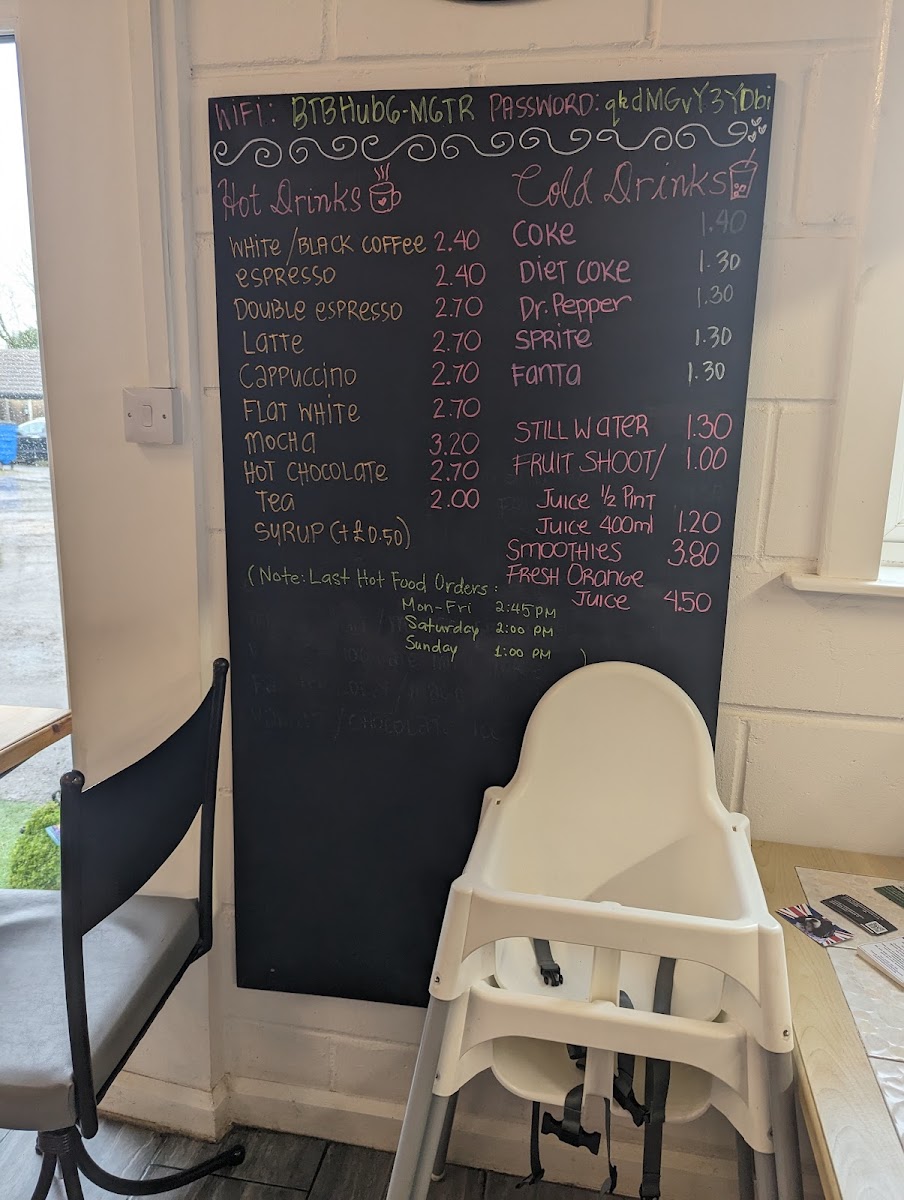 WiFi: BTBHub6-M6TR PASSWORD: qkdMGvY3YDbi
Hot Drinks
WHITE/BLACK COFFEE 2.40
ESPRESSO 2.40
DOUBLE ESPRESSO 2.70
LATTE 2.70
CAPPUCCINO 2.70
FLAT WHITE 2.70
MOCHA 3.20
HOT CHOCOLATE 2.70
TEA 2.00
SYRUP (+£0.50)
Cold Drinks
COKE 1.40
DIET COKE 1.30
Dr. Pepper 1.30
SPRITE 1.30
FANTA 1.30
STILL WATER 1.30
FRUIT SHOOT/ 1.00
JUICE ½ PINT
JUICE 400ml 1.20
SMOOTHIES 3.80
FRESH ORANGE
JUICE 4.50
(Note: Last Hot Food Orders:
Mon-Fri 2:45 PM
Saturday 2:00 PM
Sunday 1:00 PM )